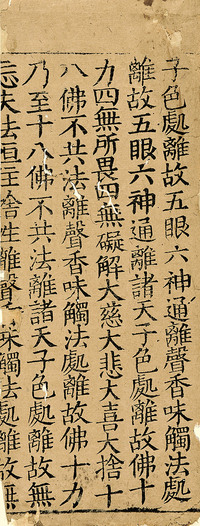 子色處離故五眼六神通離聲香味觸法處
離故五眼六神通離諸天子色處離故佛十
力四無所畏四無礙解大慈大悲大喜大捨十
八佛不共法離聲香味觸法處離故佛十力
乃至十八佛不共法離諸天子色處離故無
忘失法恒住捨性離聲香味觸法處離故無